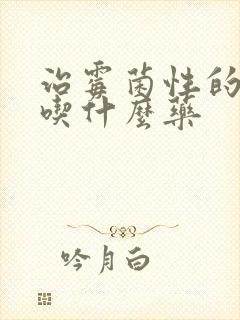 治霉菌性的
喫什麼藥
吟月白